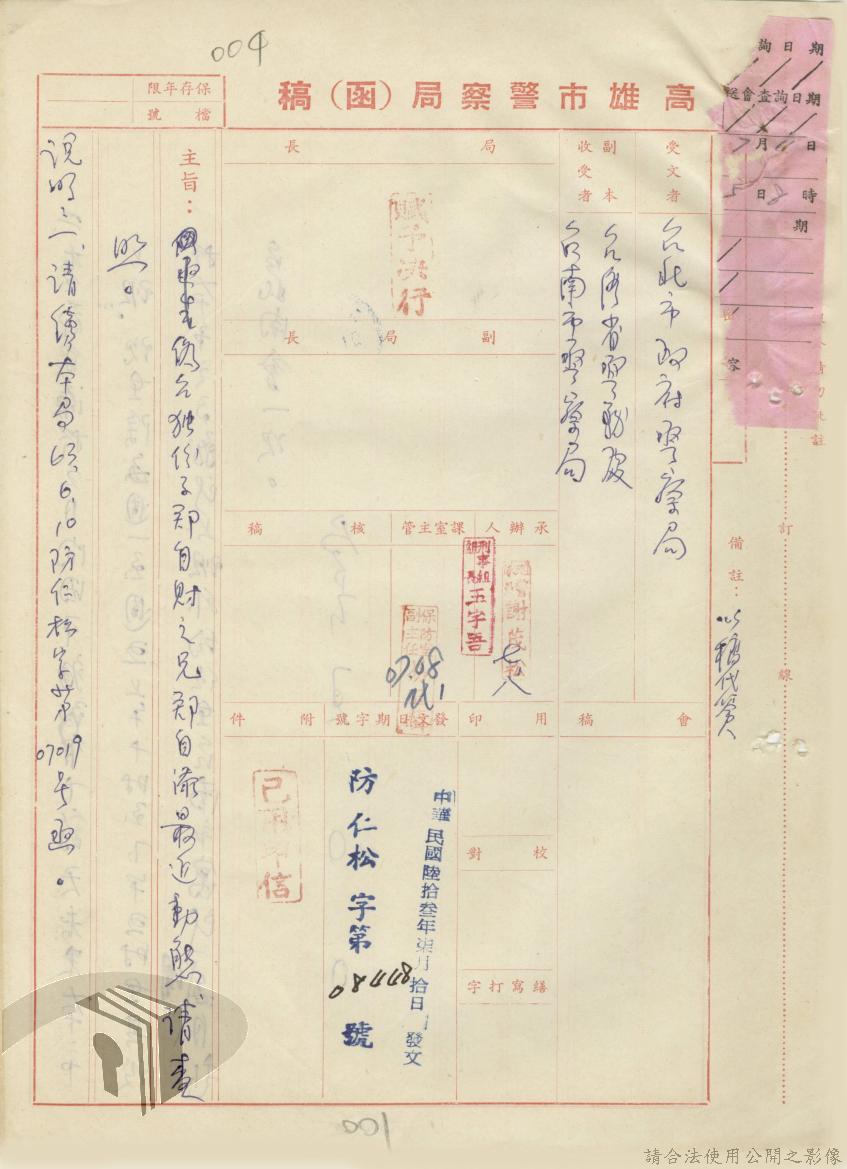 004
高雄市警察局（函）稿
保存年限
檔號
受文者
台北市政府警察局
副本收受者
台灣省警務處
台南市警察局
局長
賦予決行
副局長
承辦人
課室主管
核稿
刑事組組長王宇吾
謝茂松
七八
保防室副主任
07.08
會稿
用印
發文日期字號
附件
中華民國陸拾叁年柒月拾日發文
防仁松字第08448號
已用印信
校對
繕寫打字
備註：以稿代簽
訂
線
主旨：
偽台独份子郑自財之兄郑自
最近動態，請查
照。
說明：一、請續本局63.6.10防仁松字第07019号函。
詢日期
送會查詢日期
月
日
日時
期
001
請合法使用公開之影像